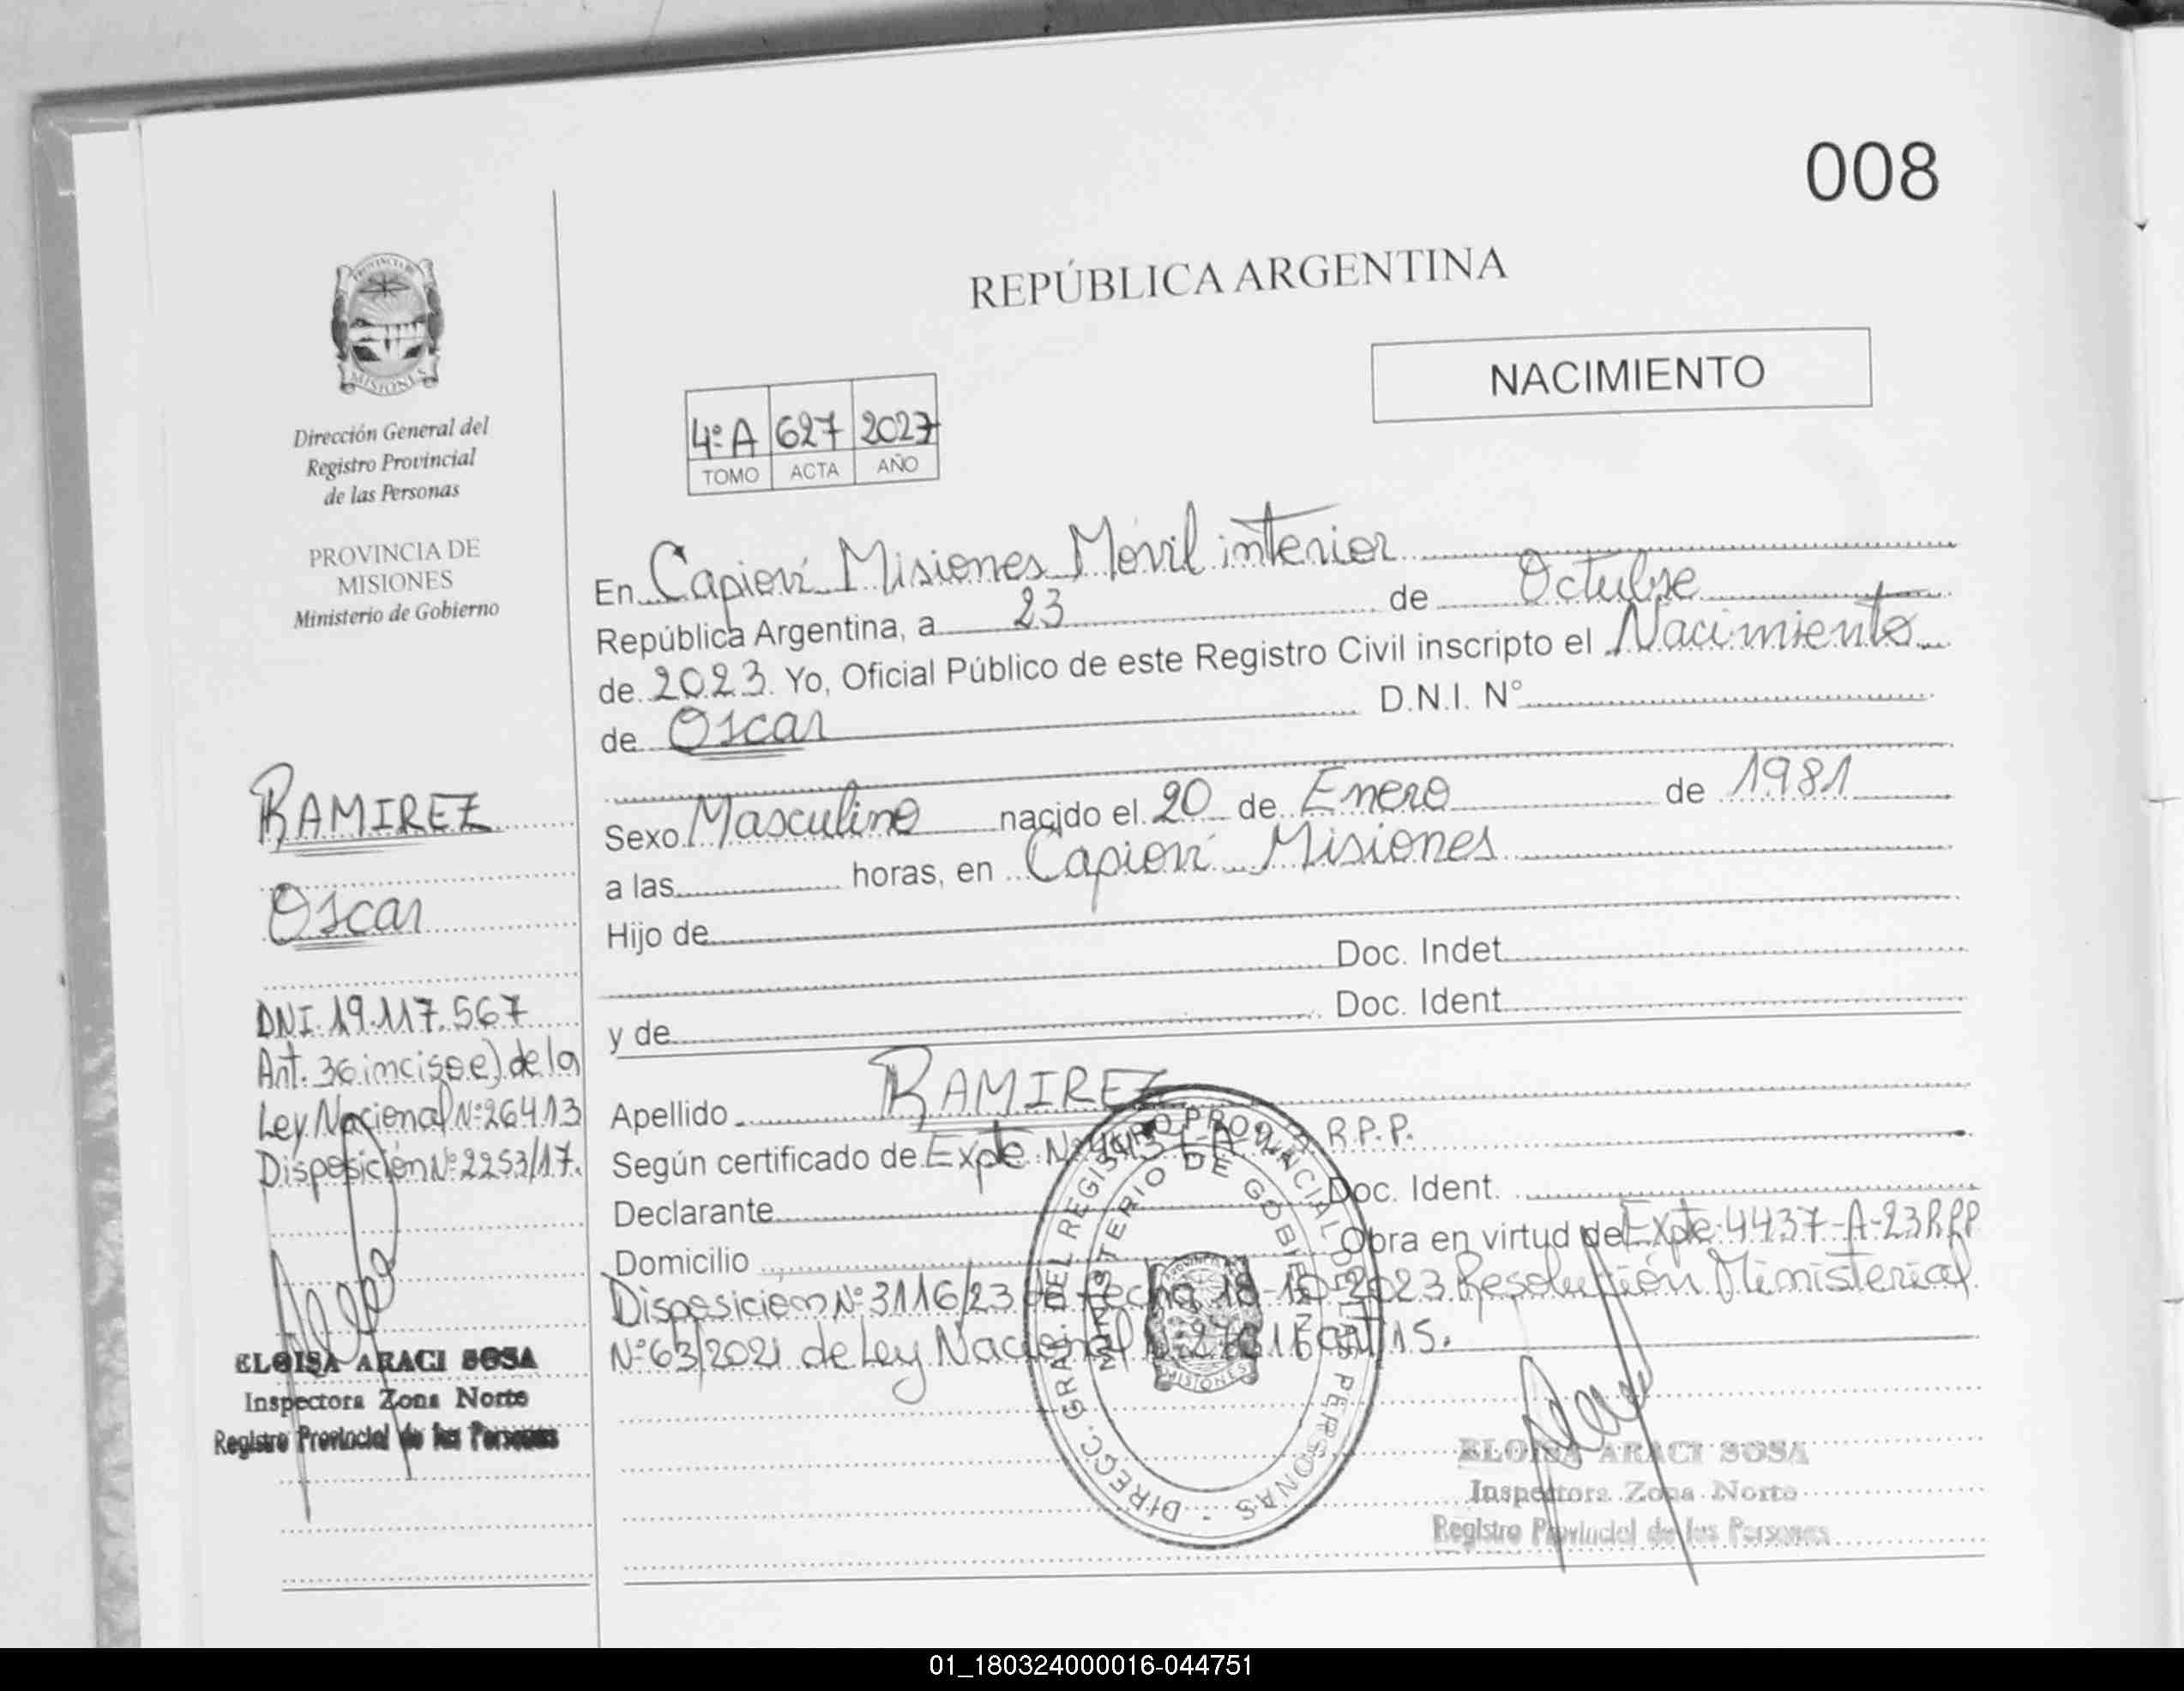 008
REPÚBLICA ARGENTINA
NACIMIENTO
PROVINCIA DE
MISIONES
Dirección General del
Registro Provincial
de las Personas
PROVINCIA DE
MISIONES
Ministerio de Gobierno
4º A 627 2023
TOMO ACTA AÑO
En Capioví Misiones Móvil interior
República Argentina, a 23 de Octubre
de 2023. Yo, Oficial Público de este Registro Civil inscripto el Nacimiento
de Oscar D.N.I. N°
Sexo Masculino nacido el 20 de Enero de 1981
a las horas, en Capioví Misiones
Hijo de
Doc. Indet.
y de Doc. Ident.
Apellido RAMIREZ
Según certificado de Expte Nº R.P.P.
Declarante Doc. Ident.
Domicilio Obra en virtud de Expte. 4437-A-23 R.P.P
Disposición Nº 3116/23 de fecha 18-10-2023 Resolución Ministerial
Nº 63/2021 de Ley Nacional art 15.
RAMIREZ
Oscar
DNI. 19.117.567
Art. 36 inciso e) de la
Ley Nacional Nº 26413
Disposición Nº 2253/17.
ELOISA ARACI SOSA
Inspectora Zona Norte
Registro Provincial de las Personas
DIRECC. GRAL. DEL REGISTRO PROVINCIAL DE LAS PERSONAS
MINISTERIO DE GOBIERNO
MISIONES
ELOISA ARACI SOSA
Inspectora Zona Norte
Registro Provincial de las Personas
01_180324000016-044751